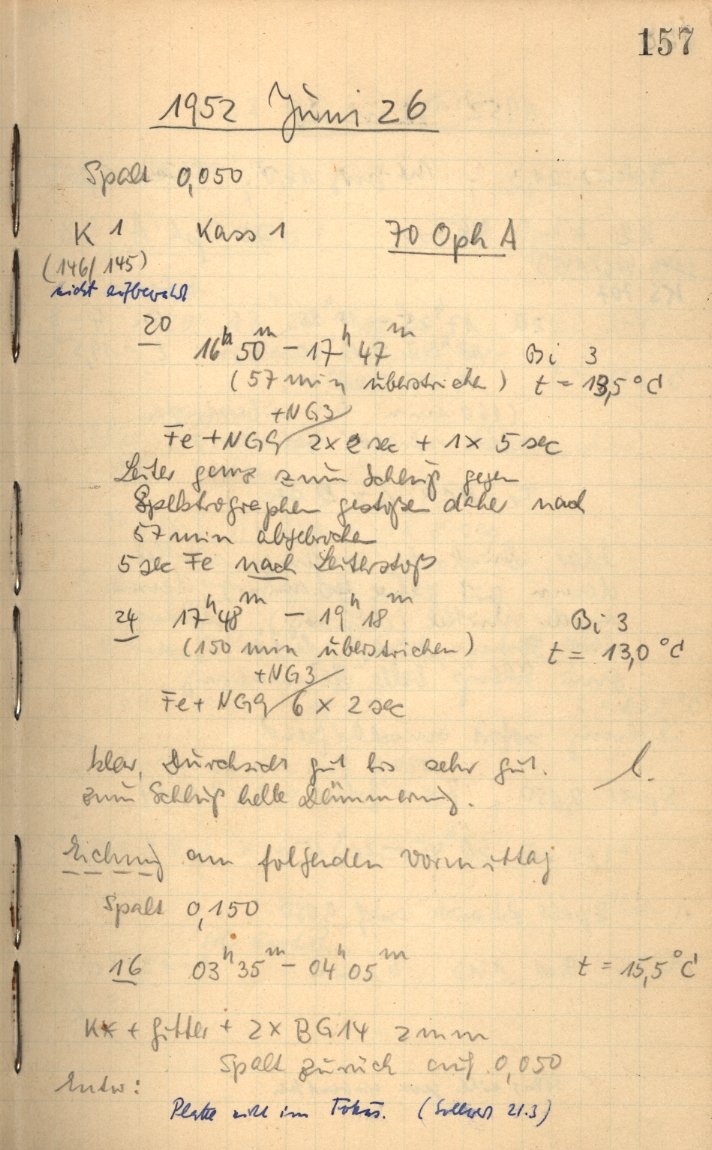 157
1952 Juni 26
Spalt 0,050
K 1 Kass 1 70 Oph A
(146/145)
nicht aufbewahrt
20 16h 50m – 17h 47m Bi 3
(57 min überstrichen) t = 13,5 °C
+NG3
Fe + NG9 2x2 sec + 1x 5 sec
Leiter ganz zum Schluß gegen
Spektrographen gestoßen daher nach
57 min abgebrochen
5 sec Fe nach Leiterstoß
24 17h 48m – 19h 18m Bi 3
(150 min überstrichen) t = 13,0 °C
+NG3
Fe + NG9 6 x 2 sec
klar, Durchsicht gut bis sehr gut.
zum Schluß helle Dämmerung.
Eichung am folgenden Vormittag
Spalt 0,150
16 03h 35m – 04h 05m t = 15,5 °C
+ Gitter + 2x BG14 2mm
Spalt zurück auf 0,050
Entw:
Platte nicht im Fokus. (Sollwert 21.3)